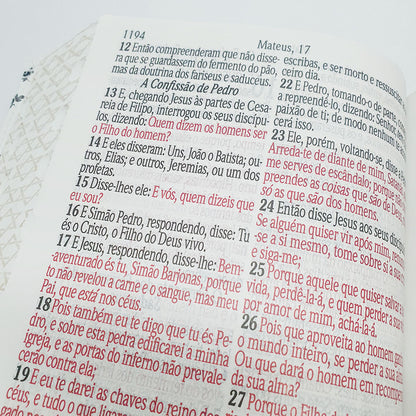 1194
Mateus, 17
12 Então compreenderam que não disse-
ra que se guardassem do fermento do pão,
mas da doutrina dos fariseus e saduceus.
A Confissão de Pedro
13 E, chegando Jesus às partes de Cesa-
reia de Filipo, interrogou os seus discípu-
los, dizendo: Quem dizem os homens ser
o Filho do homem?
14 E eles disseram: Uns, João o Batista; ou-
tros, Elias; e outros, Jeremias, ou um dos
profetas.
15 Disse-lhes ele: E vós, quem dizeis que
eu sou?
16 E Simão Pedro, respondendo, disse: Tu
és o Cristo, o Filho do Deus vivo.
17 E Jesus, respondendo, disse-lhe: Bem-
aventurado és tu, Simão Barjonas, porque
to não revelou a carne e o sangue, mas meu
Pai, que está nos céus.
18 Pois também eu te digo que tu és Pe-
dro, e sobre esta pedra edificarei a minha
igreja, e as portas do inferno não prevale-
cerão contra ela;
19 E eu te darei as chaves do reino dos
céus, e tudo o que ligares
escribas, e ser morto e ressuscitar
ceiro dia.
22 E Pedro, tomando-o de parte,
a repreendê-lo, dizendo: Senhor,
paixão de ti; de modo nenhum te
cerá isso.
23 Ele, porém, voltando-se, disse a
Arreda-te de diante de mim, Satanás,
me serves de escândalo; porque
preendes as coisas que são de Deus,
só as que são dos homens.
24 Então disse Jesus aos seus discíp
Se alguém quiser vir após mim, renun
-se a si mesmo, tome sobre si a sua
e siga-me;
25 Porque aquele que quiser salvar a
vida, perdê-la-á, e quem perder a
por amor de mim, achá-la-á.
26 Pois que aproveita ao homem ganh
o mundo inteiro, se perder a sua alm
Ou que dará o homem em recompen
da sua alma?
27 Porque o Filho do homem